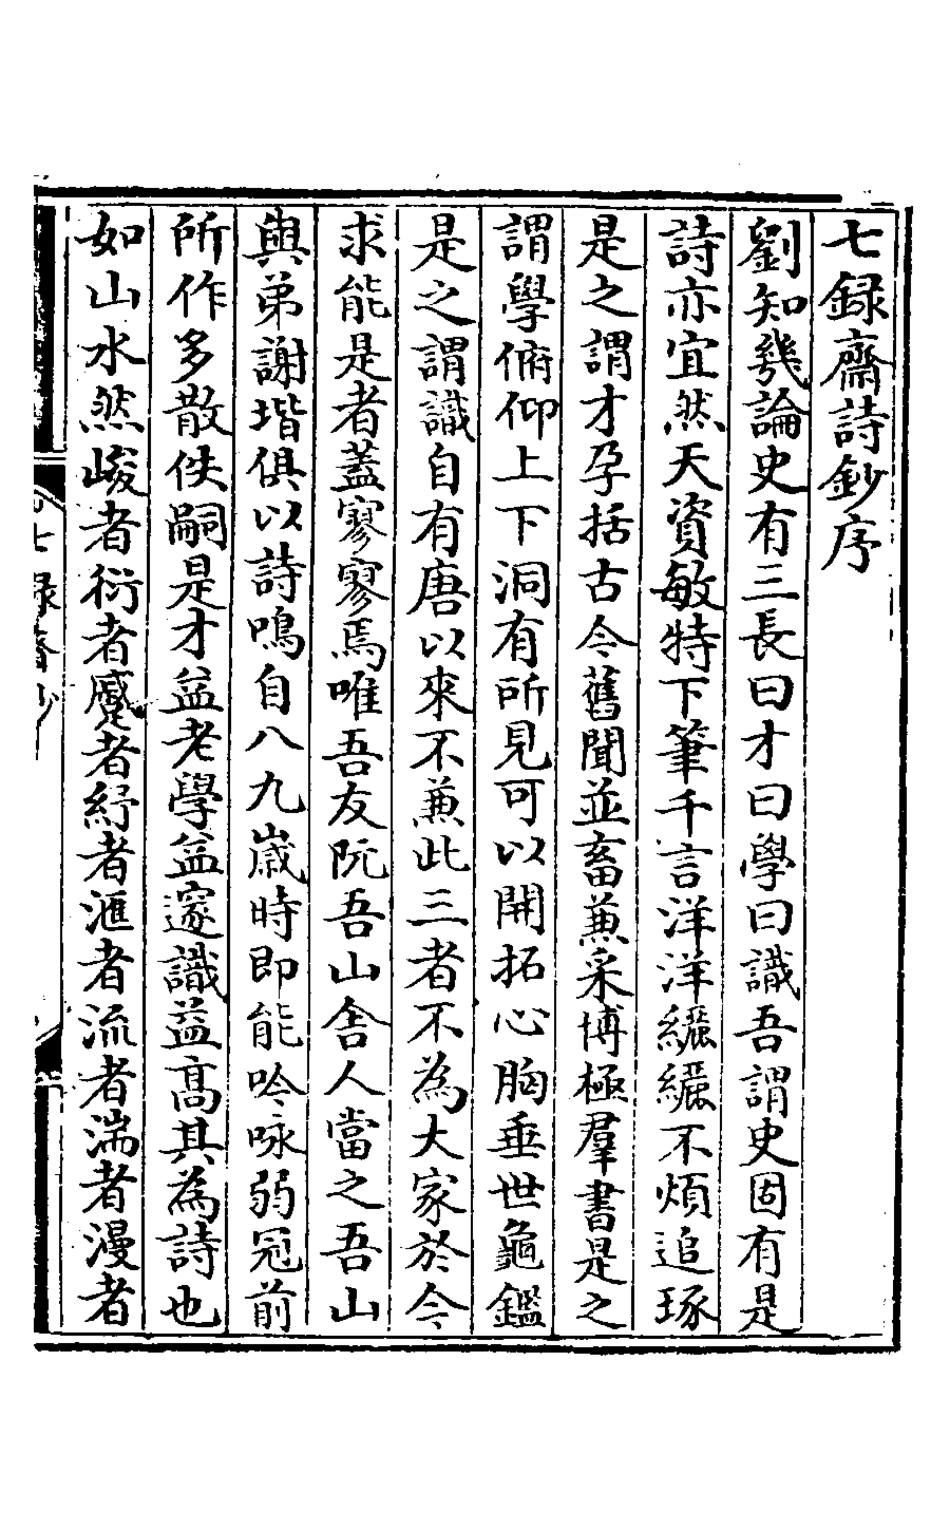 七録齋詩鈔序
劉知幾論史有三長曰才曰學曰識吾謂史固有是
詩亦宜然天資敏特下筆千言洋洋纚纚不煩追琢
是之謂才孕括古今舊聞並畜兼采博極羣書是之
謂學俯仰上下洞有所見可以開拓心胸垂世龜鑑
是之謂識自有唐以來不兼此三者不為大家於今
求能是者蓋寥寥焉唯吾友阮吾山舍人當之吾山
與弟謝堦俱以詩鳴自八九歲時即能吟咏弱冠前
所作多散佚嗣是才益老學益邃識益高其為詩也
如山水然峻者衍者蹙者紆者滙者流者湍者漫者
七録齋鈔